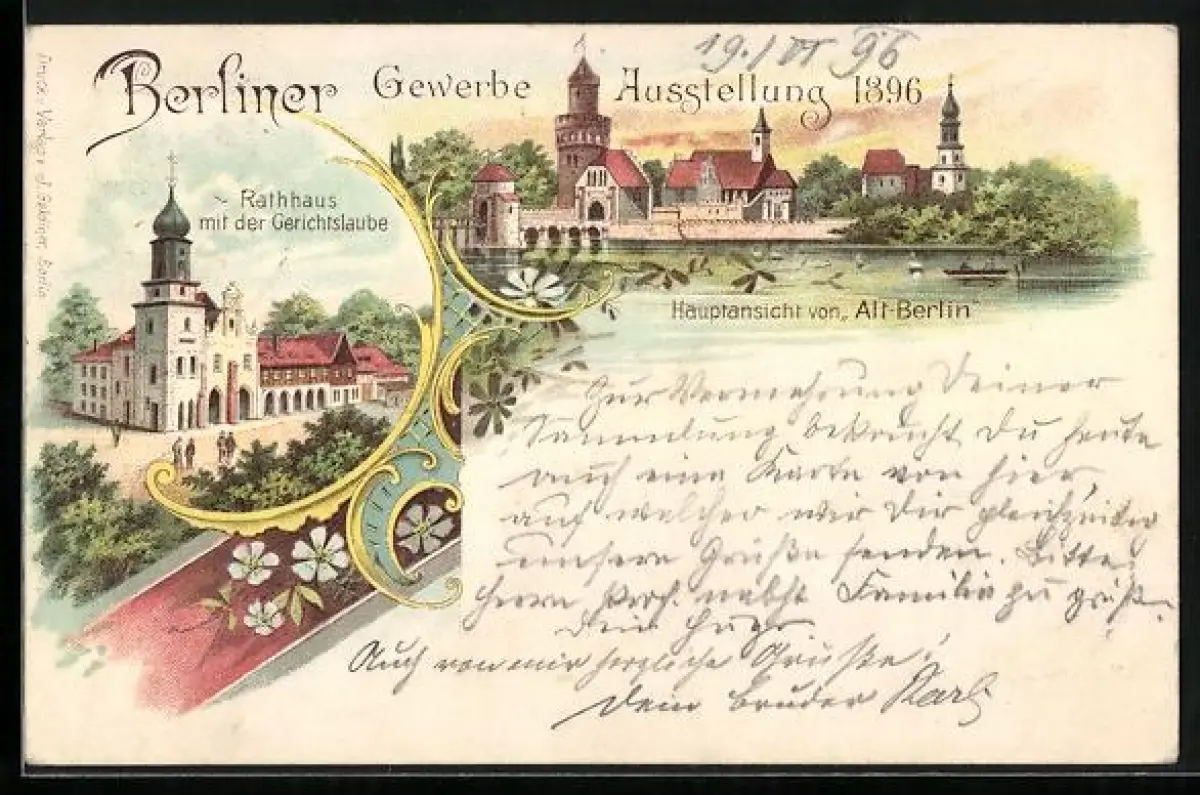 Berliner Gewerbe Ausstellung 1896
19./VI 96
Rathhaus
mit der Gerichtslaube
Hauptansicht von „Alt-Berlin"
Zur Vermehrung Deiner
Sammlung bekommst Du heute
auch eine Karte von hier,
auf welcher wir Dir gleichzeitig
unsere Grüße senden. Bitte
Herrn Prof. nebst Familie zu grüßen.
Dein Hugo
Auch von mir herzliche Grüße!
Dein Bruder Karl